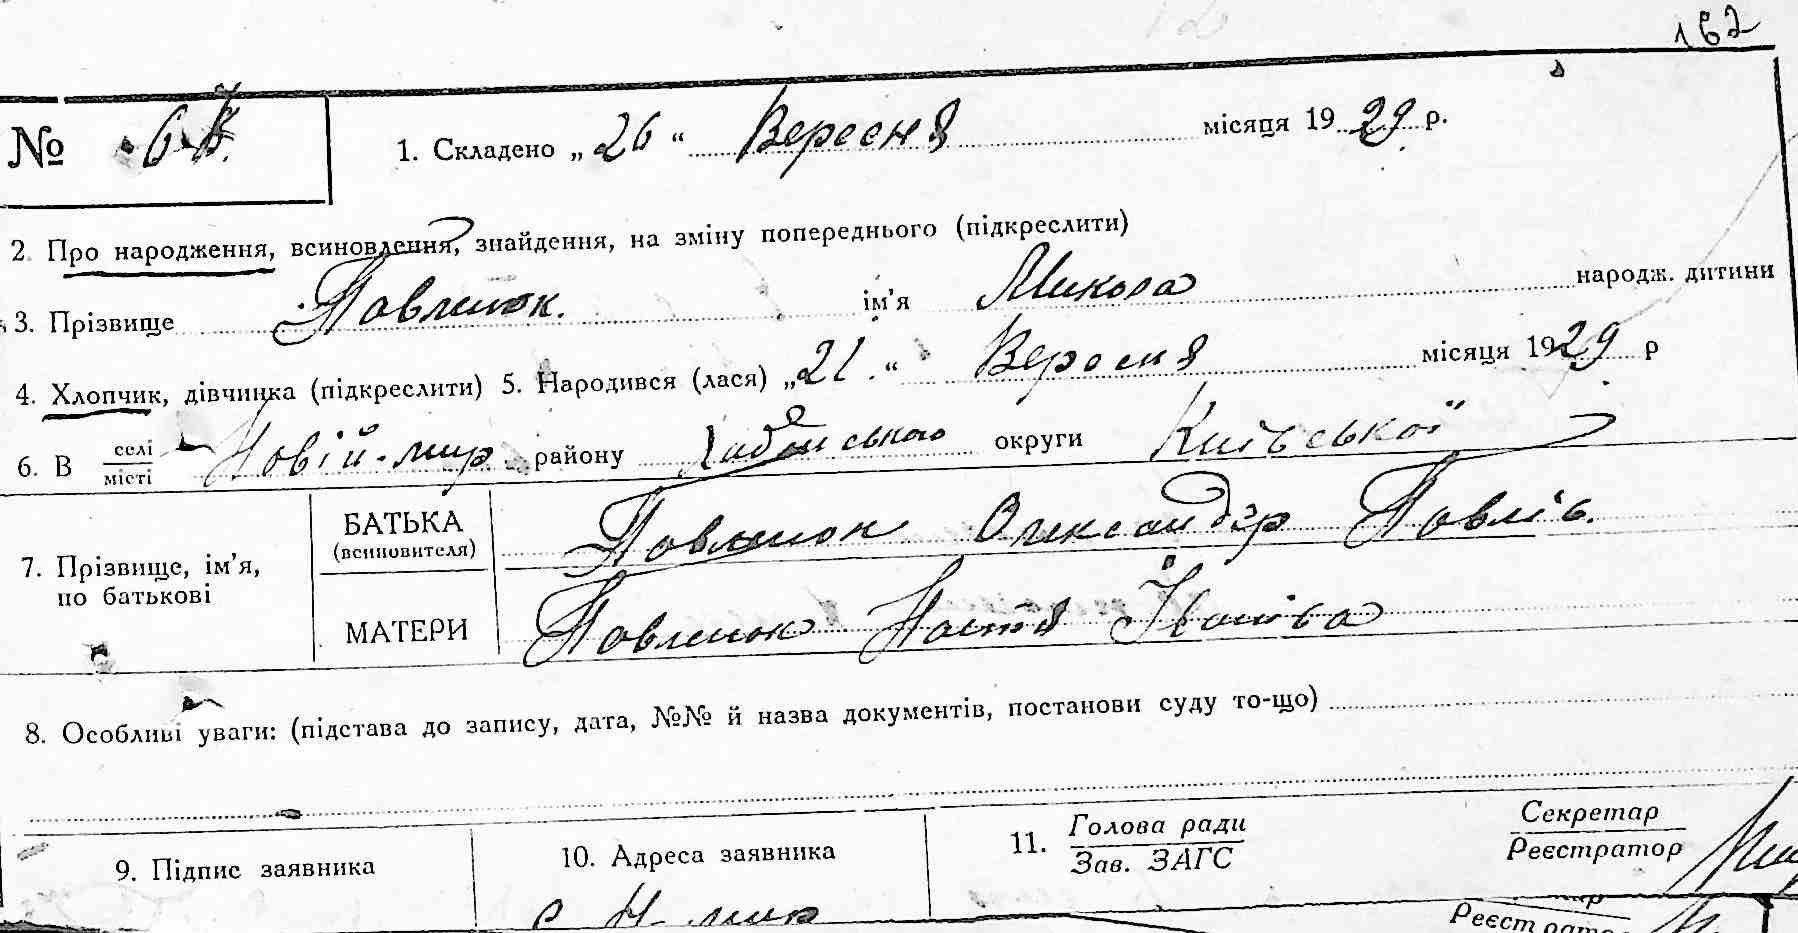 162
№ 67.
1. Складено „26“ Вересня місяця 1929 р.
2. Про народження, всиновлення, знайдення, на зміну попереднього (підкреслити)
3. Прізвище Павленок. ім'я Микола народж. дитини
4. Хлопчик, дівчинка (підкреслити) 5. Народився (лася) „21.“ Вересня місяця 1929 р
6. В селі місті Новій-мир району Хабенського округи Київської
7. Прізвище, ім'я, по батькові
БАТЬКА (всиновителя) Павленок Олександр Павлів.
МАТЕРИ Павленок Настя Іванівна
8. Особливі уваги: (підстава до запису, дата, №№ й назва документів, постанови суду то-що)
9. Підпис заявника
10. Адреса заявника
с Н мир
11. Голова ради
Зав. ЗАГС
Секретар
Реєстратор
Реєстратор